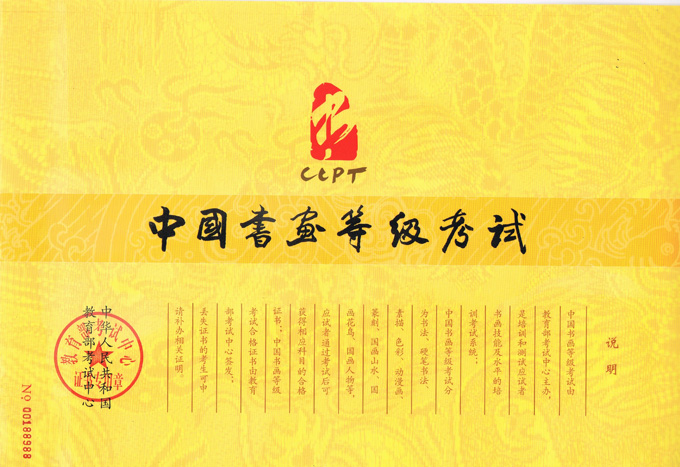 CCPT
中國書画等级考试
说明
中国书画等级考试由
教育部考试中心主办，
是培训和测试应试者
书画技能及水平的培
训考试系统；
中国书画等级考试分
为书法、硬笔书法、
素描、色彩、动漫画、
篆刻、国画山水、国
画花鸟、国画人物等，
应试者通过考试后可
获得相应科目的合格
证书；中国书画等级
考试合格证书由教育
部考试中心签发；
丢失证书的考生可申
请补办相关证明。
中华人民共和国
教育部考试中心
教育部考试中心
No 00188988